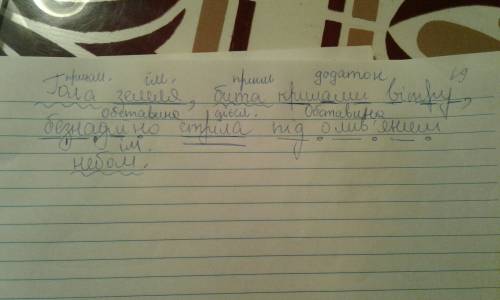 прикм. ім. прикм додаток
Гола земля, бита крилами вітру,
обставина дієсл. Обставина
безнадійно стригла під олив'яним
ім.
небом.